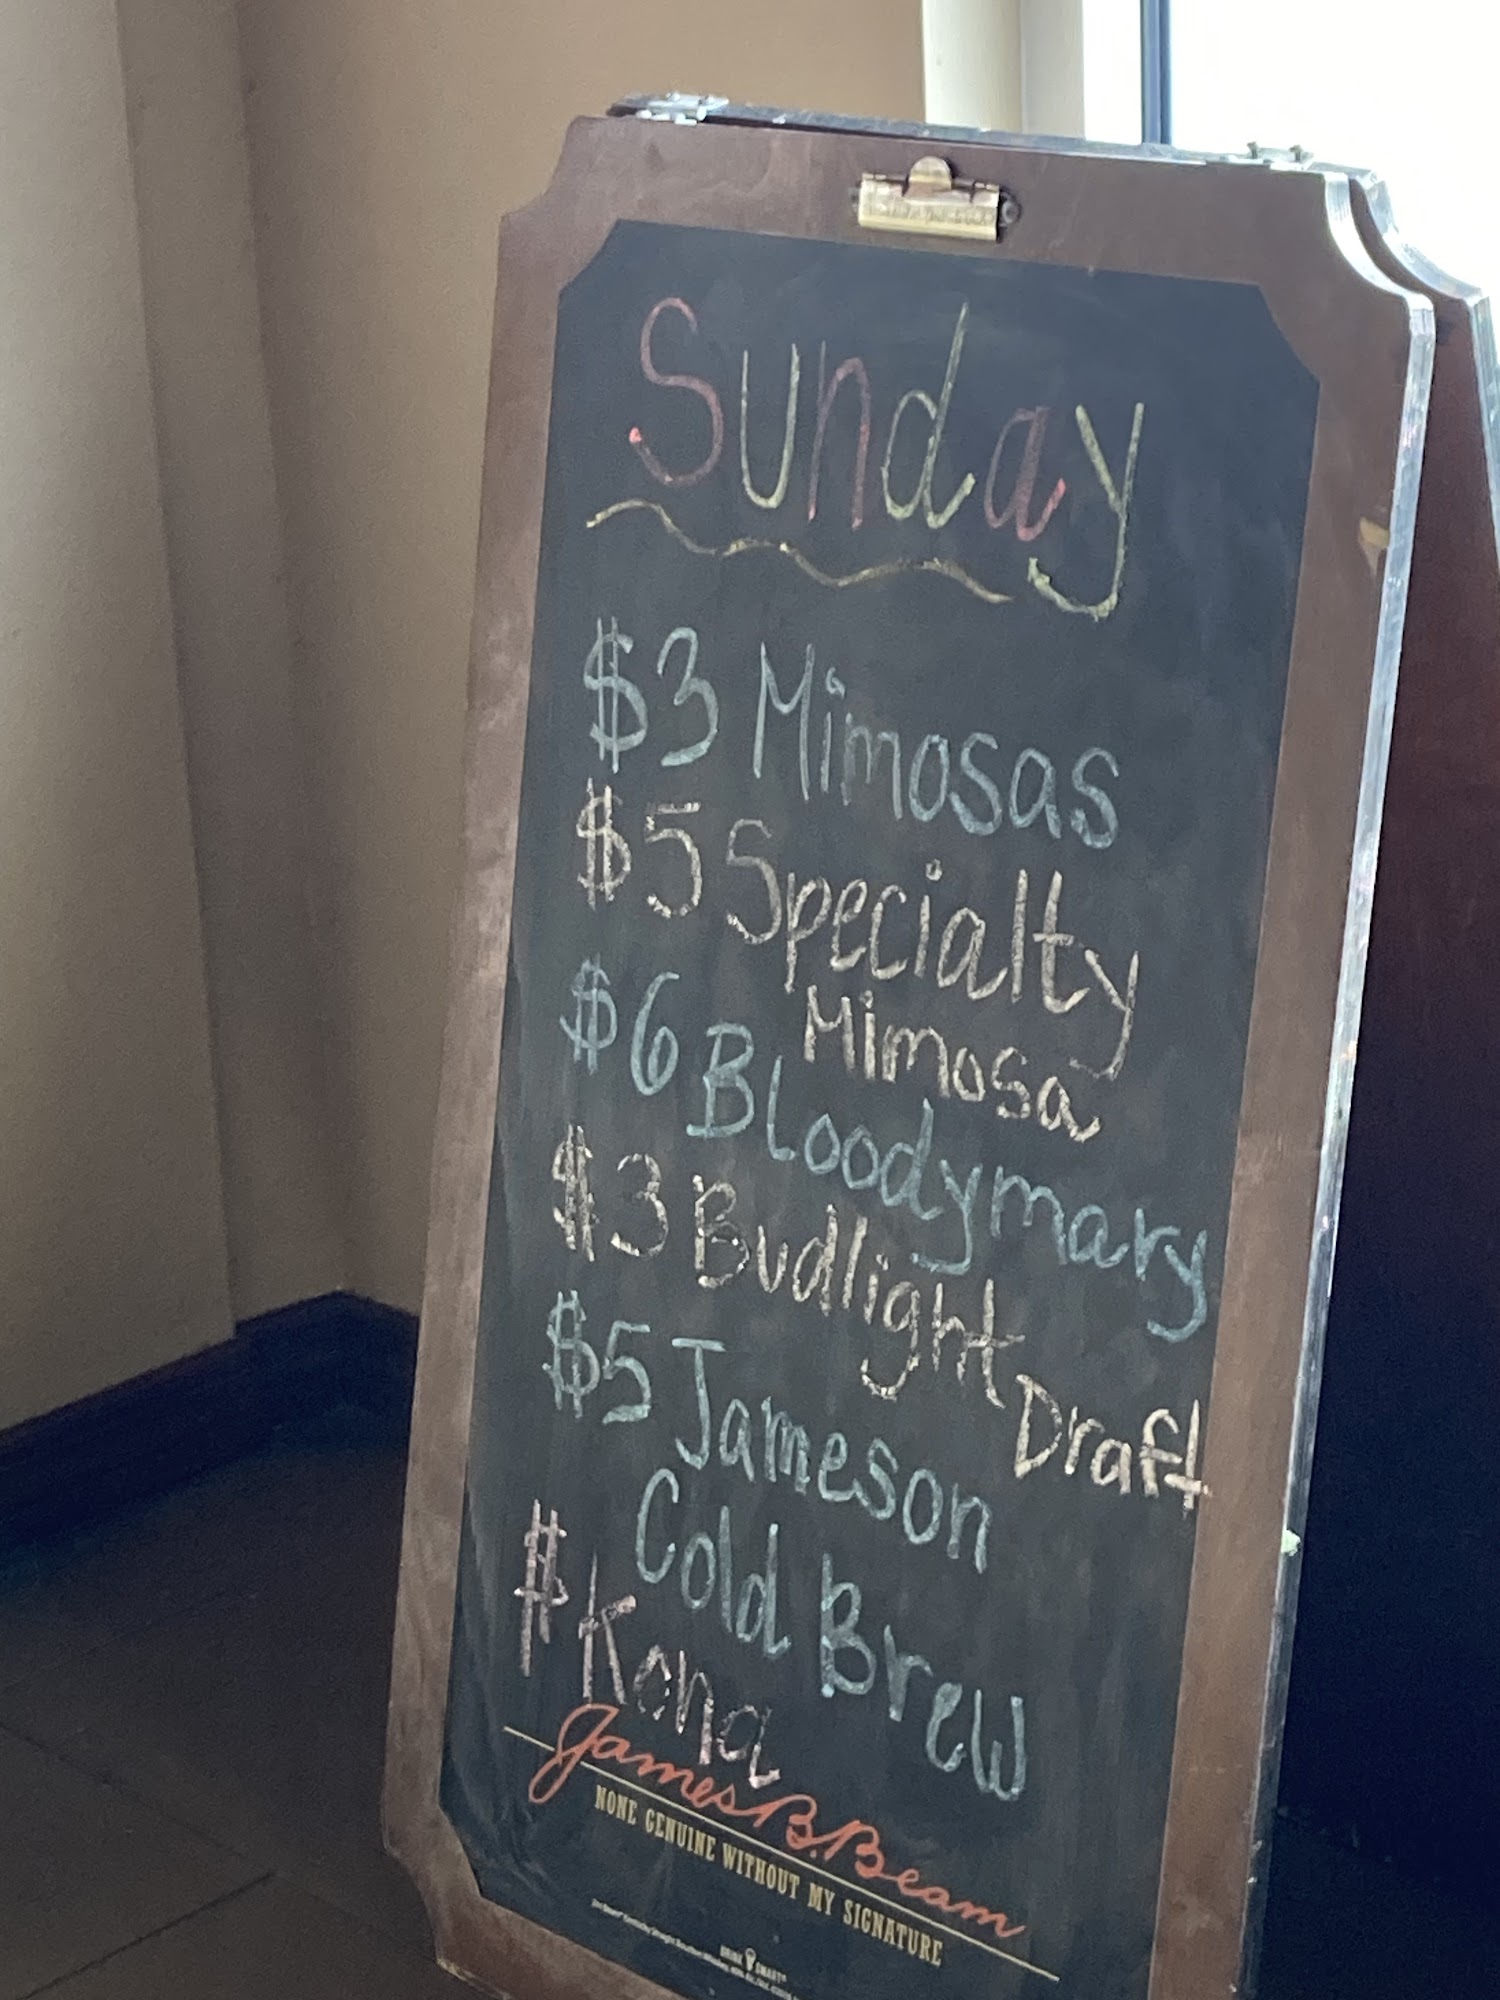 Sunday
$3 Mimosas
$5 Specialty
Mimosa
$6 Bloodymary
$3 Budlight
Draft
$5 Jameson
Cold Brew
$ Kona
James B. Beam
NONE GENUINE WITHOUT MY SIGNATURE
DRINK SMART®